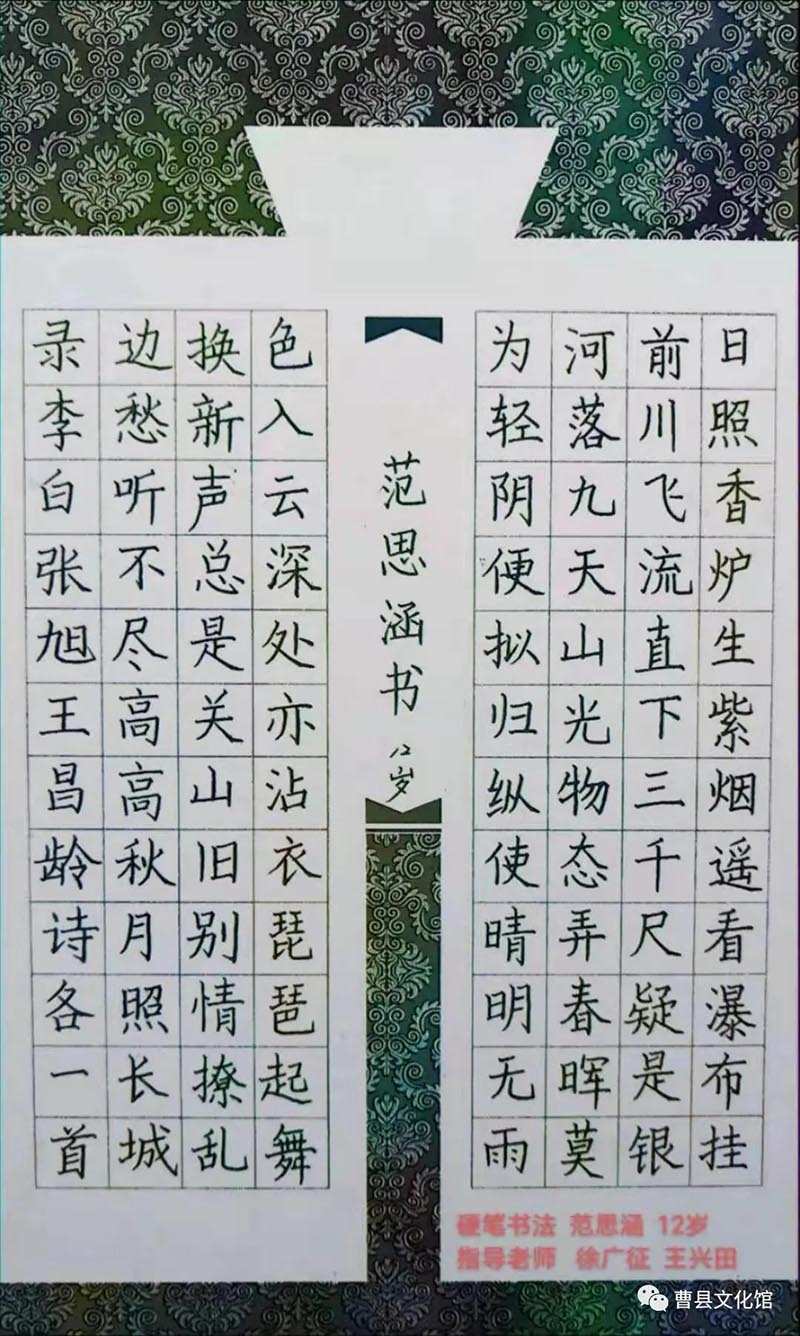 日照香炉生紫烟遥看瀑布挂
前川飞流直下三千尺疑是银
河落九天山光物态弄春晖莫
为轻阴便拟归纵使晴明无雨
色入云深处亦沾衣琵琶起舞
换新声总是关山旧别情撩乱
边愁听不尽高高秋月照长城
录李白张旭王昌龄诗各一首
范思涵书12岁
硬笔书法 范思涵 12岁
指导老师 徐广征 王兴田
曹县文化馆